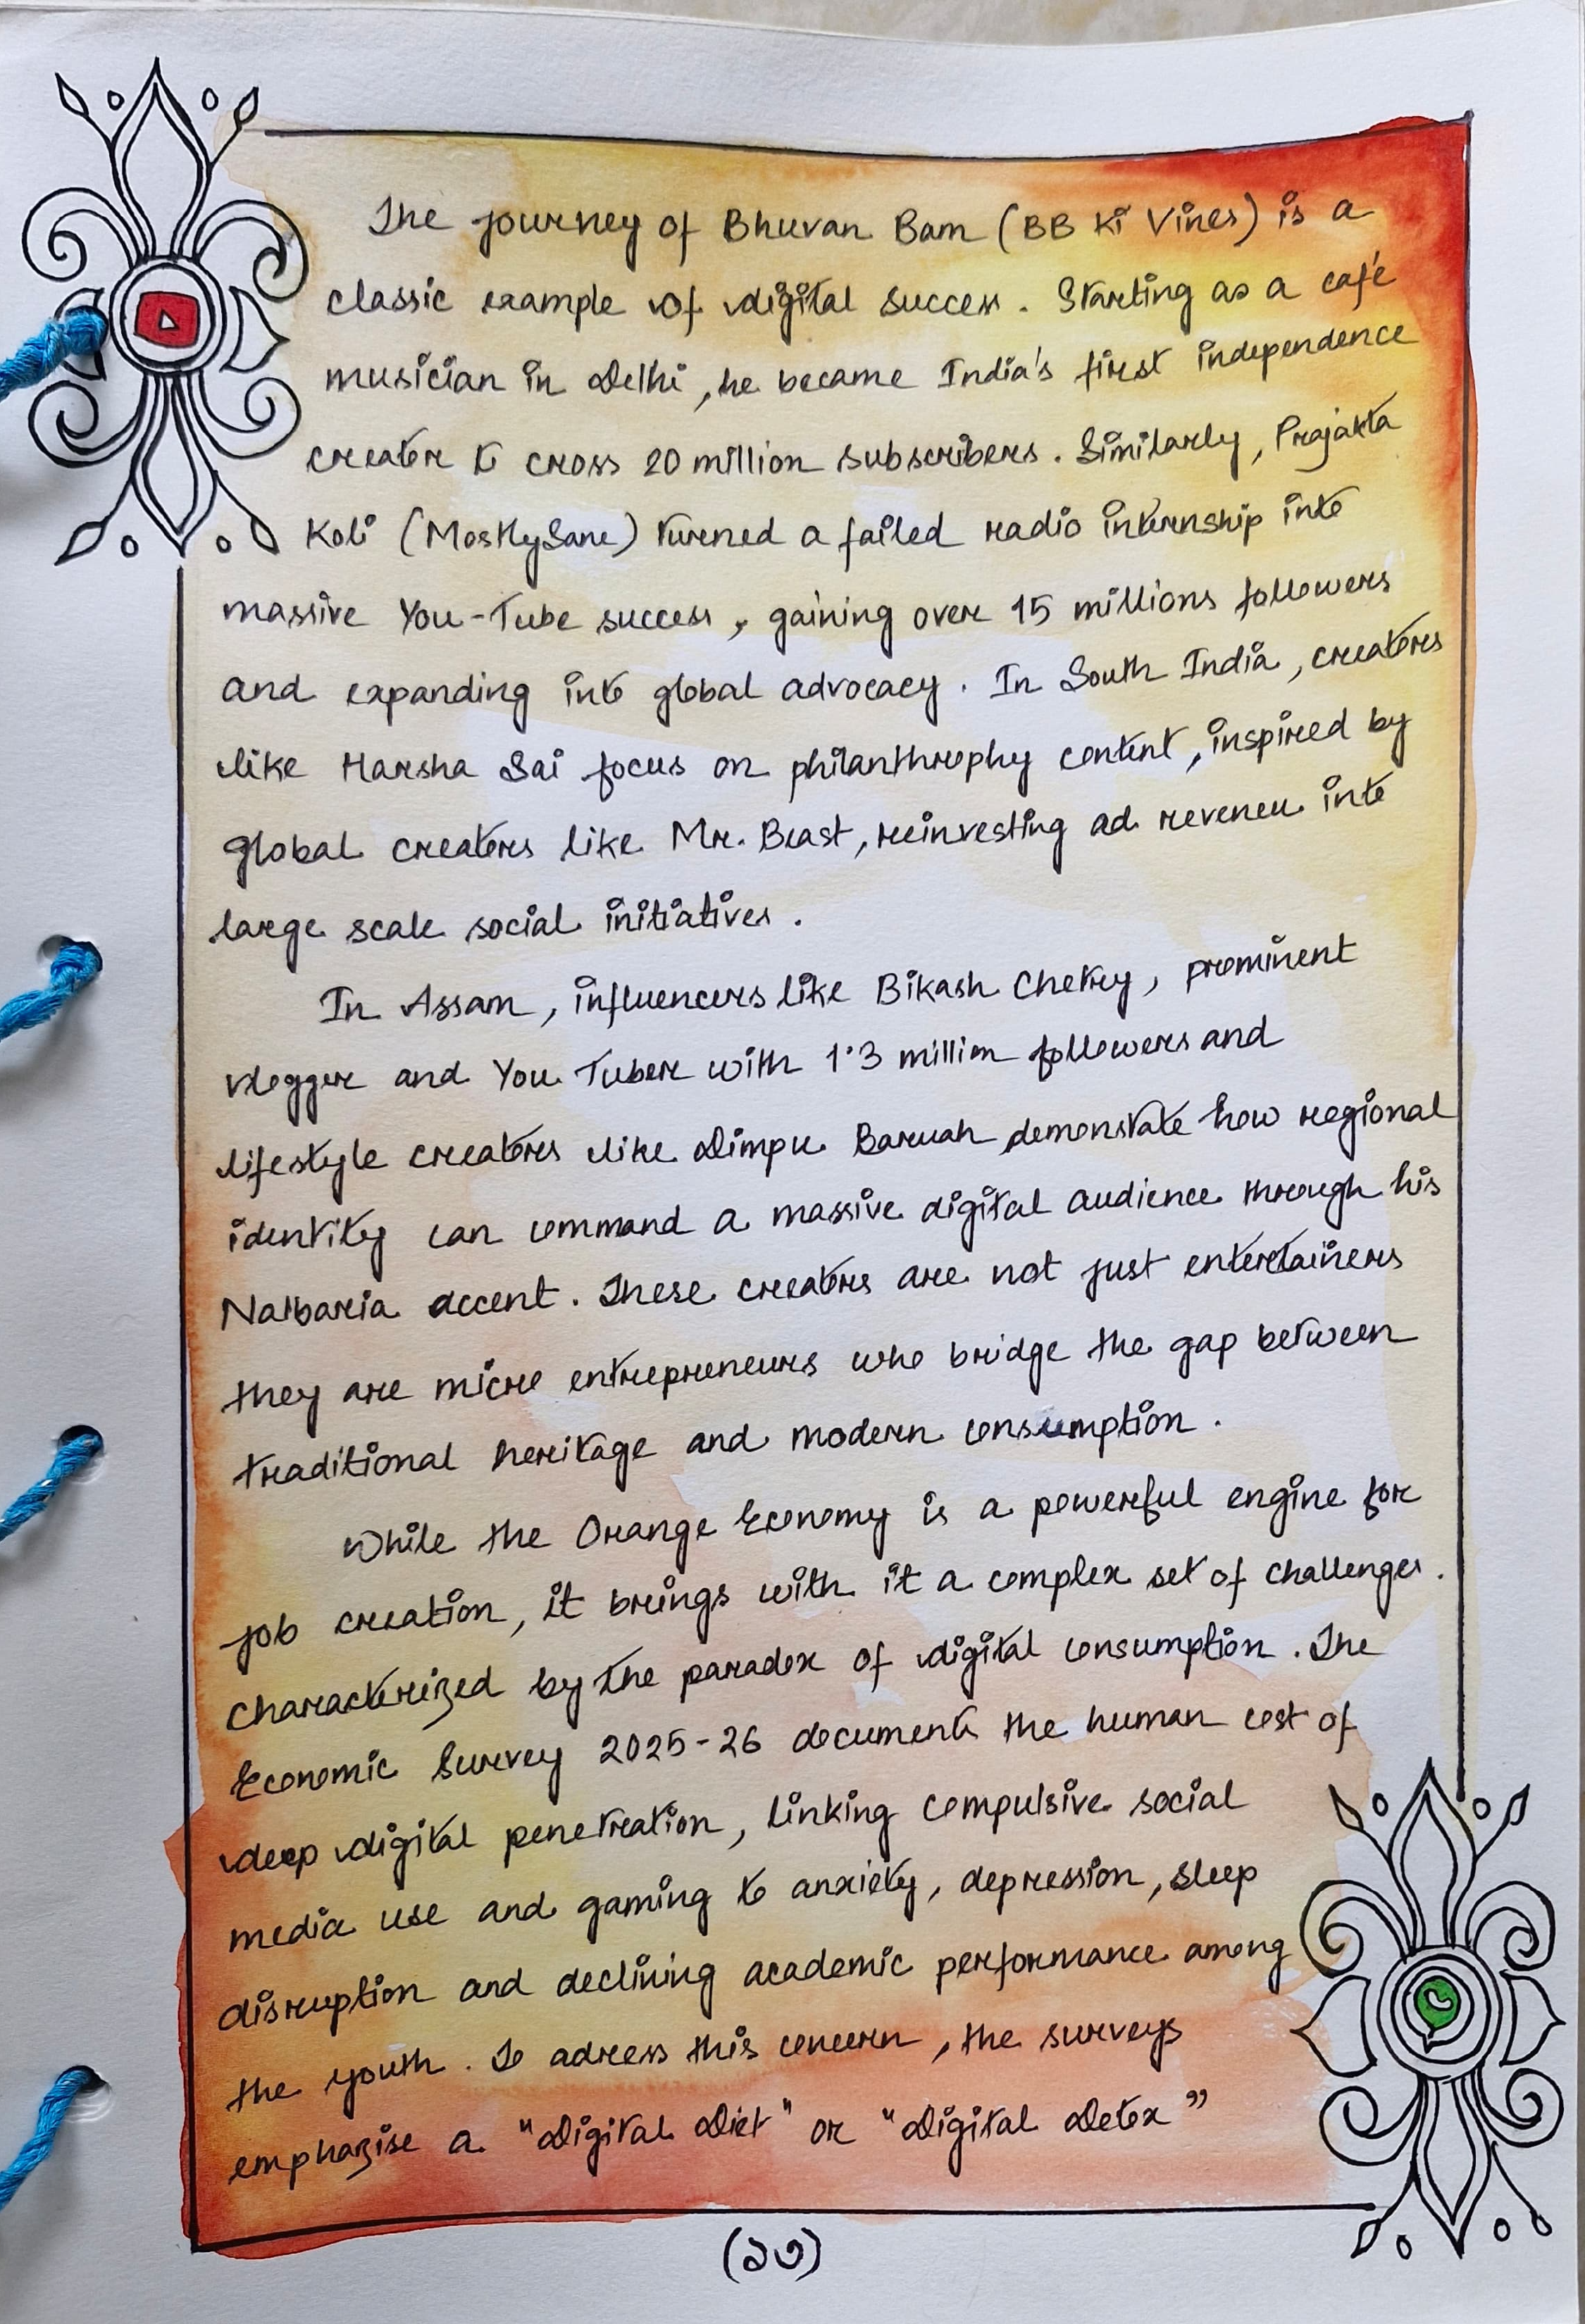 The journey of Bhuvan Bam (BB Ki Vines) is a
classic example of digital success. Starting as a café
musician in Delhi, he became India's first independence
creator to cross 20 million subscribers. Similarly, Prajakta
Koli (MostlySane) turned a failed radio internship into
massive You-Tube success, gaining over 15 millions followers
and expanding into global advocacy. In South India, creators
like Harsha Sai focus on philanthrophy content, inspired by
global creators like Mr. Beast, reinvesting ad reveneu into
large scale social initiatives.
In Assam, influencers like Bikash Chetry, prominent
vlogger and You Tuber with 1.3 million followers and
lifestyle creators like Dimpu Baruah demonstate how regional
identity can command a massive digital audience through his
Nalbaria accent. These creators are not just entertainers
they are micro entrepreneurs who bridge the gap between
traditional heritage and modern consumption.
While the Orange Economy is a powerful engine for
job creation, it brings with it a complex set of challenges.
characterized by the paradox of digital consumption. The
Economic Survey 2025-26 documents the human cost of
deep digital penetration, linking compulsive social
media use and gaming to anxiety, depression, sleep
disruption and declining academic performance among
the youth. To adress this concern, the surveys
emphazise a "Digital Diet" or "Digital Detox"
(১৩)